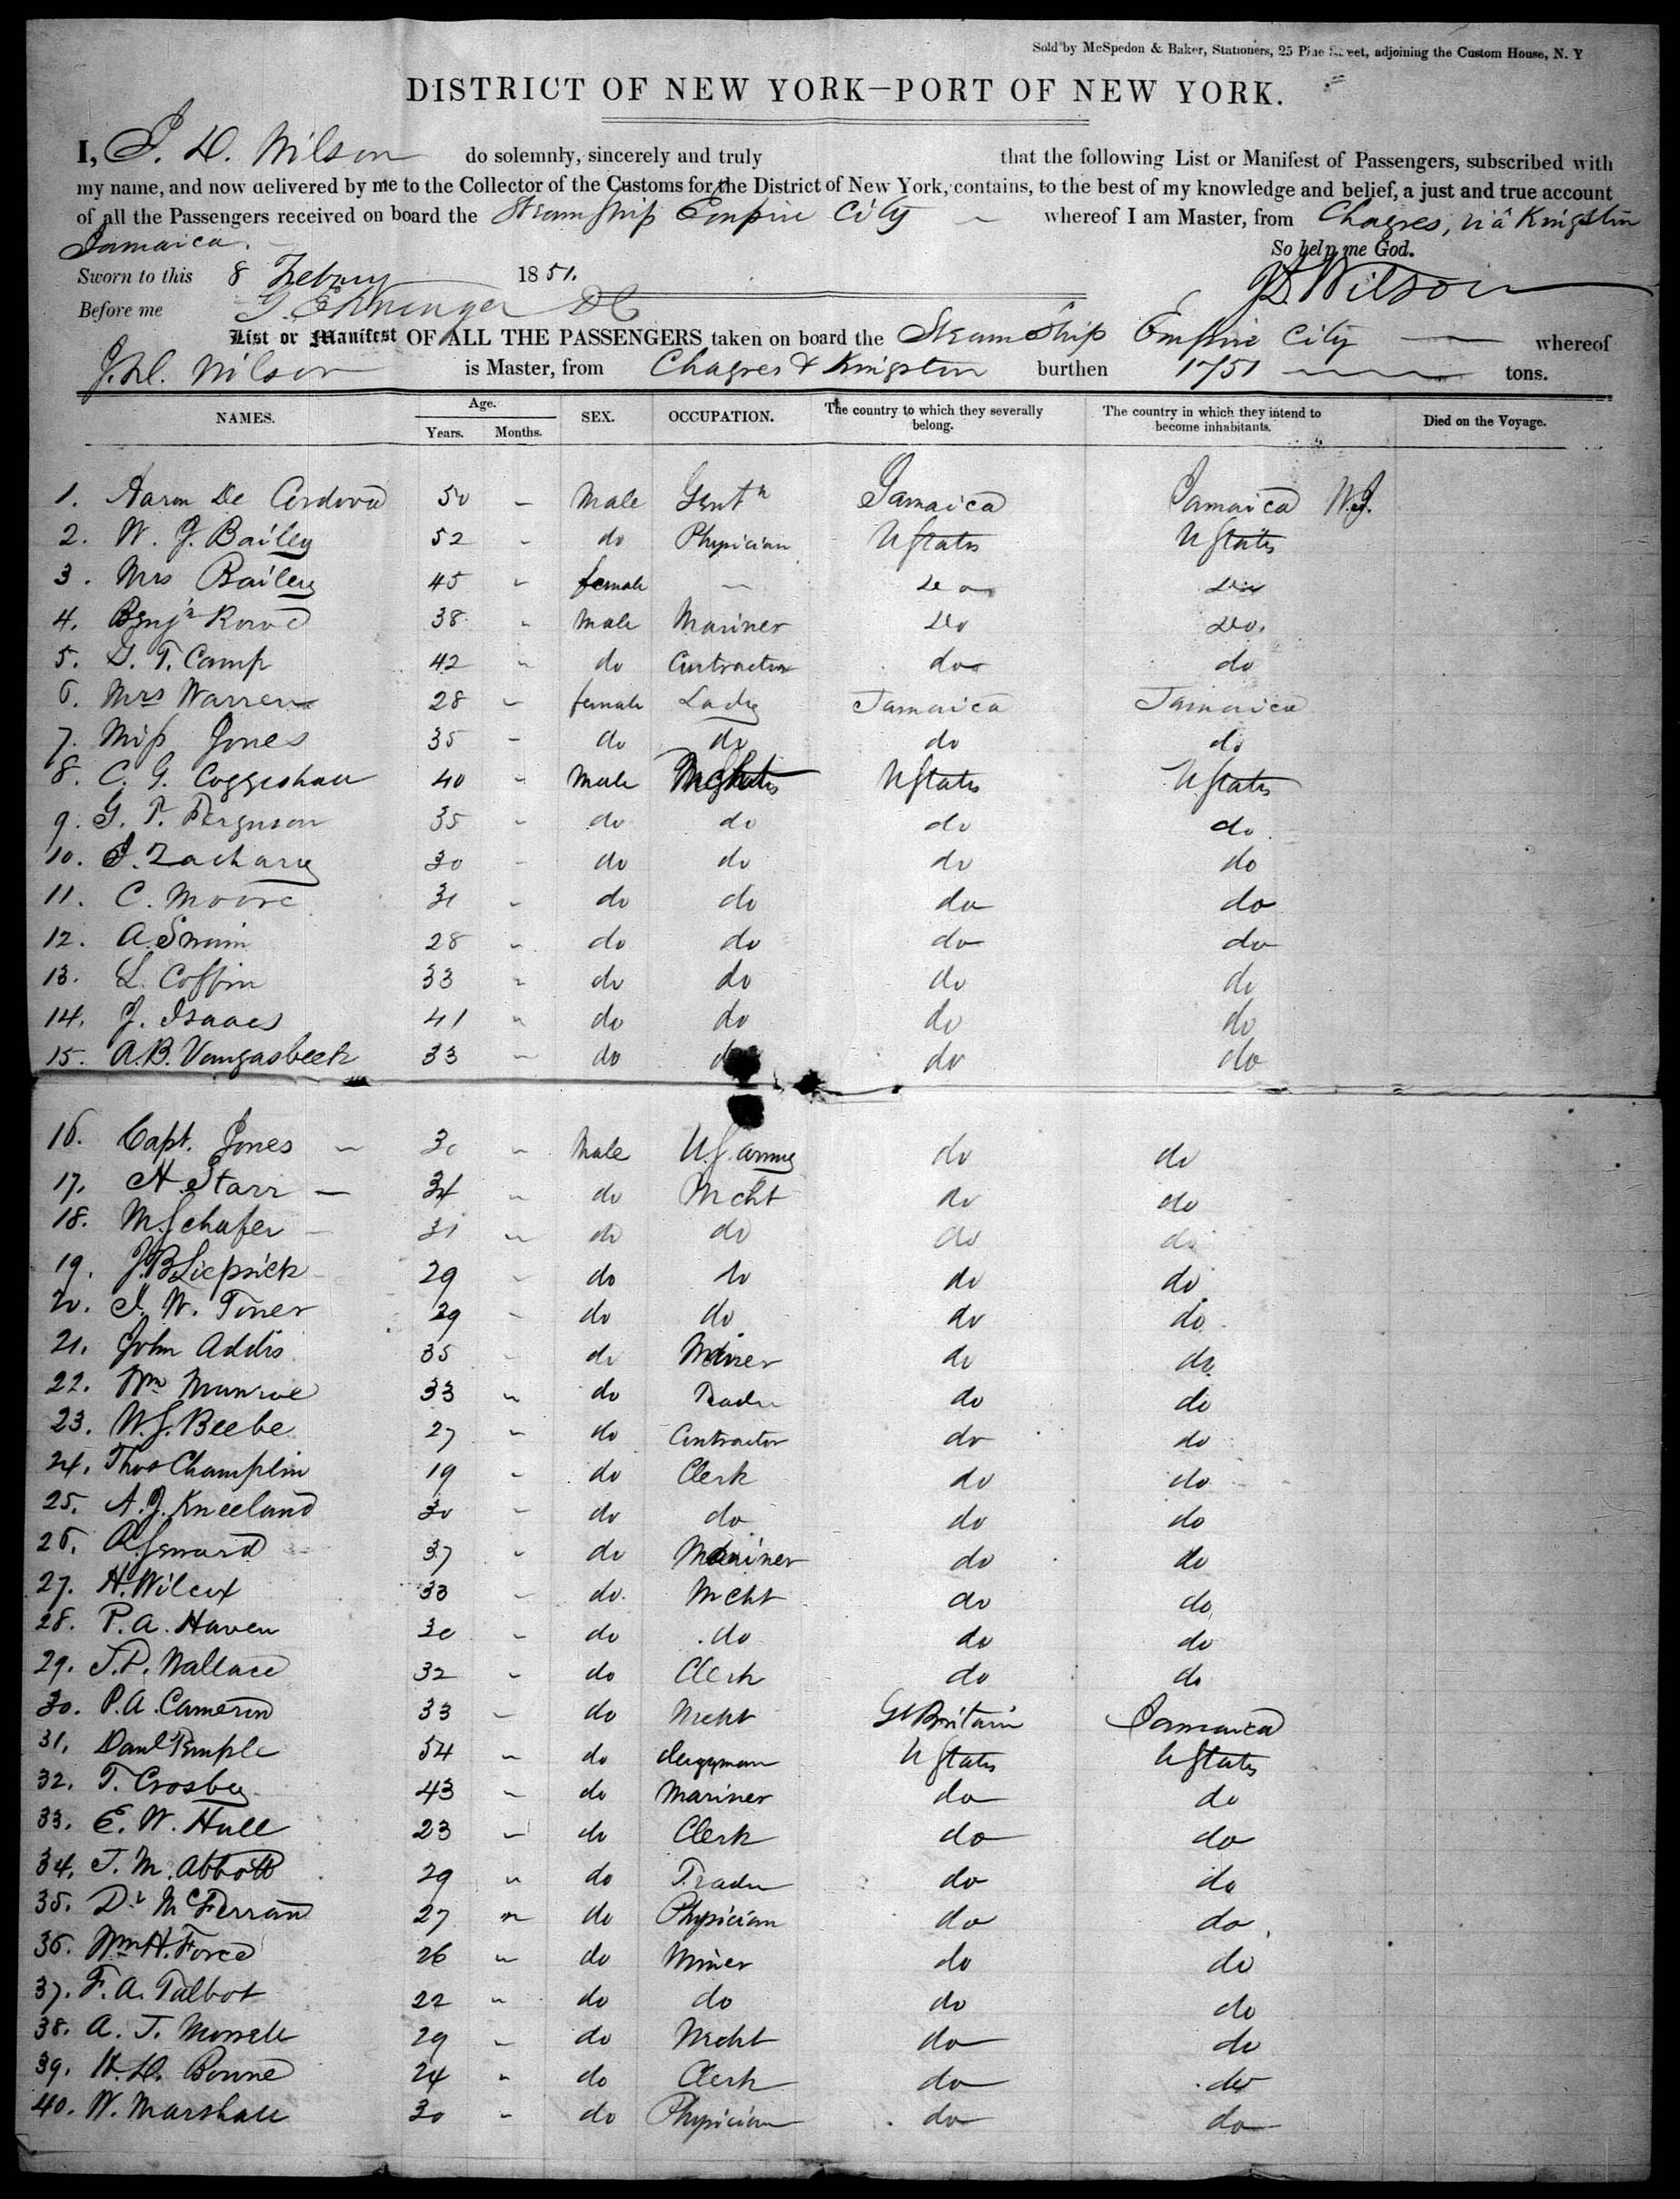 Sold by McSpedon & Baker, Stationers, 25 Pine Street, adjoining the Custom House, N. Y
DISTRICT OF NEW YORK—PORT OF NEW YORK.
I, J. D. Wilson do solemnly, sincerely and truly that the following List or Manifest of Passengers, subscribed with
my name, and now delivered by me to the Collector of the Customs for the District of New York, contains, to the best of my knowledge and belief, a just and true account
of all the Passengers received on board the Steamship Empire City whereof I am Master, from Chagres, via Kingston
Jamaica.
So help me God.
Sworn to this 8 Februy 1851.
JD Wilson
Before me
List or Manifest OF ALL THE PASSENGERS taken on board the Steam Ship Empire City — whereof
J. D. Wilson is Master, from Chagres & Kingston burthen 1751 tons.
NAMES. Age. Years. Months. SEX. OCCUPATION. The country to which they severally belong. The country in which they intend to become inhabitants. Died on the Voyage.
1. Aaron De Cordova 50 - Male Gentn Jamaica Jamaica W.I.
2. W. J. Bailey 52 " do Physician UStates UStates
3. Mrs Bailey 45 " female — Do Do
4. Benjn 38 " Male Mariner Do Do.
5. G. T. Camp 42 " do Contractor do do
6. Mrs Warren 28 " female Lady Jamaica Jamaica
7. Miss Jones 35 " do do do do
8. C. G. Coggeshall 40 " Male UStates UStates
9. G. P. Ferguson 35 " do do do do
10. J. Zachary 30 - do do do do
11. C. Moore 31 " do do do do
12. A. Swain 28 " do do do do
13. L. Coffin 33 " do do do do
14. J. Isaacs 41 " do do do do
15. A.B. Vangasbeek 33 " do do do do
16. Capt. Jones — 30 " Male U.S. Army do do
17. H. Starr — 34 " do Mcht do do
18. M. Schafer 31 " do do do do
19. J.B. 29 " do do do do
20. J. W. Toner 29 " do do do do
21. John Addis 35 " do Miner do do
22. Wm Munroe 33 " do Trader do do
23. W. S. Beebe 27 " do Contractor do do
24. Thos Champlin 19 " do Clerk do do
25. A. J. Kneeland 30 " do do do do
26. A. Seward 37 " do Mariner do do
27. H. Wilcox 33 " do. Mcht do do
28. P. A. Haven 30 " do do do do
29. J. P. Wallace 32 " do Clerk do do
30. P. A. Cameron 33 " do Mcht Gt Britain Jamaica
31. Danl Temple 54 " do Clergyman U States U States
32. T. Crosby 43 " do Mariner do do
33. E. W. Hull 23 " do Clerk do do
34. J. M. Abbott 29 " do Trader do do
35. Dr McFerran 27 " do Physician do do
36. Wm H. Force 26 " do Miner do do
37. F. A. Talbot 22 " do do do do
38. A. J. Morrell 29 " do Mcht do do
39. H. D. Bowne 24 " do Clerk do do
40. W. Marshall 30 " do Physician do do